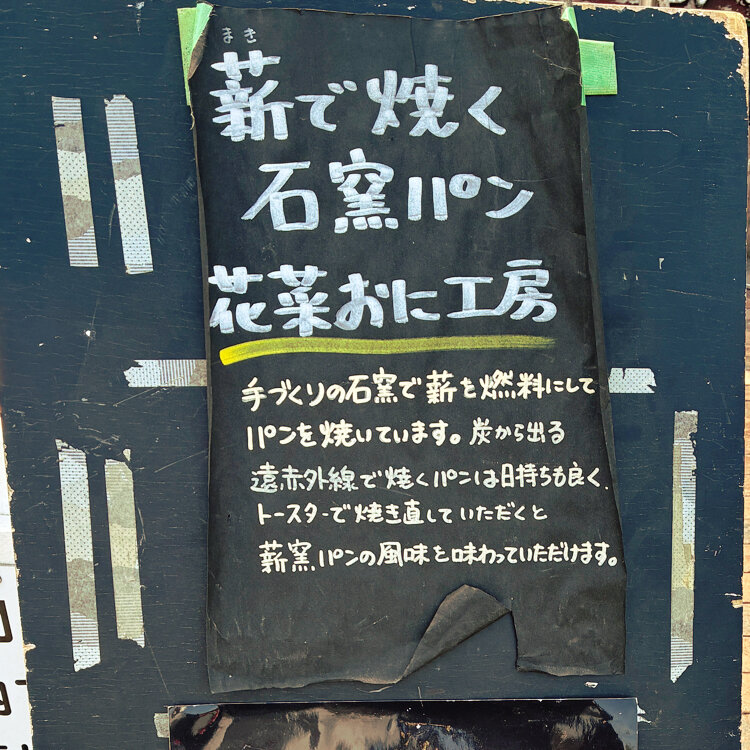 まき
薪で焼く
石窯パン
花菜おに工房
手づくりの石窯で薪を燃料にして
パンを焼いています。炭から出る
遠赤外線で焼くパンは日持ちも良く、
トースターで焼き直していただくと
薪窯パンの風味を味わっていただけます。